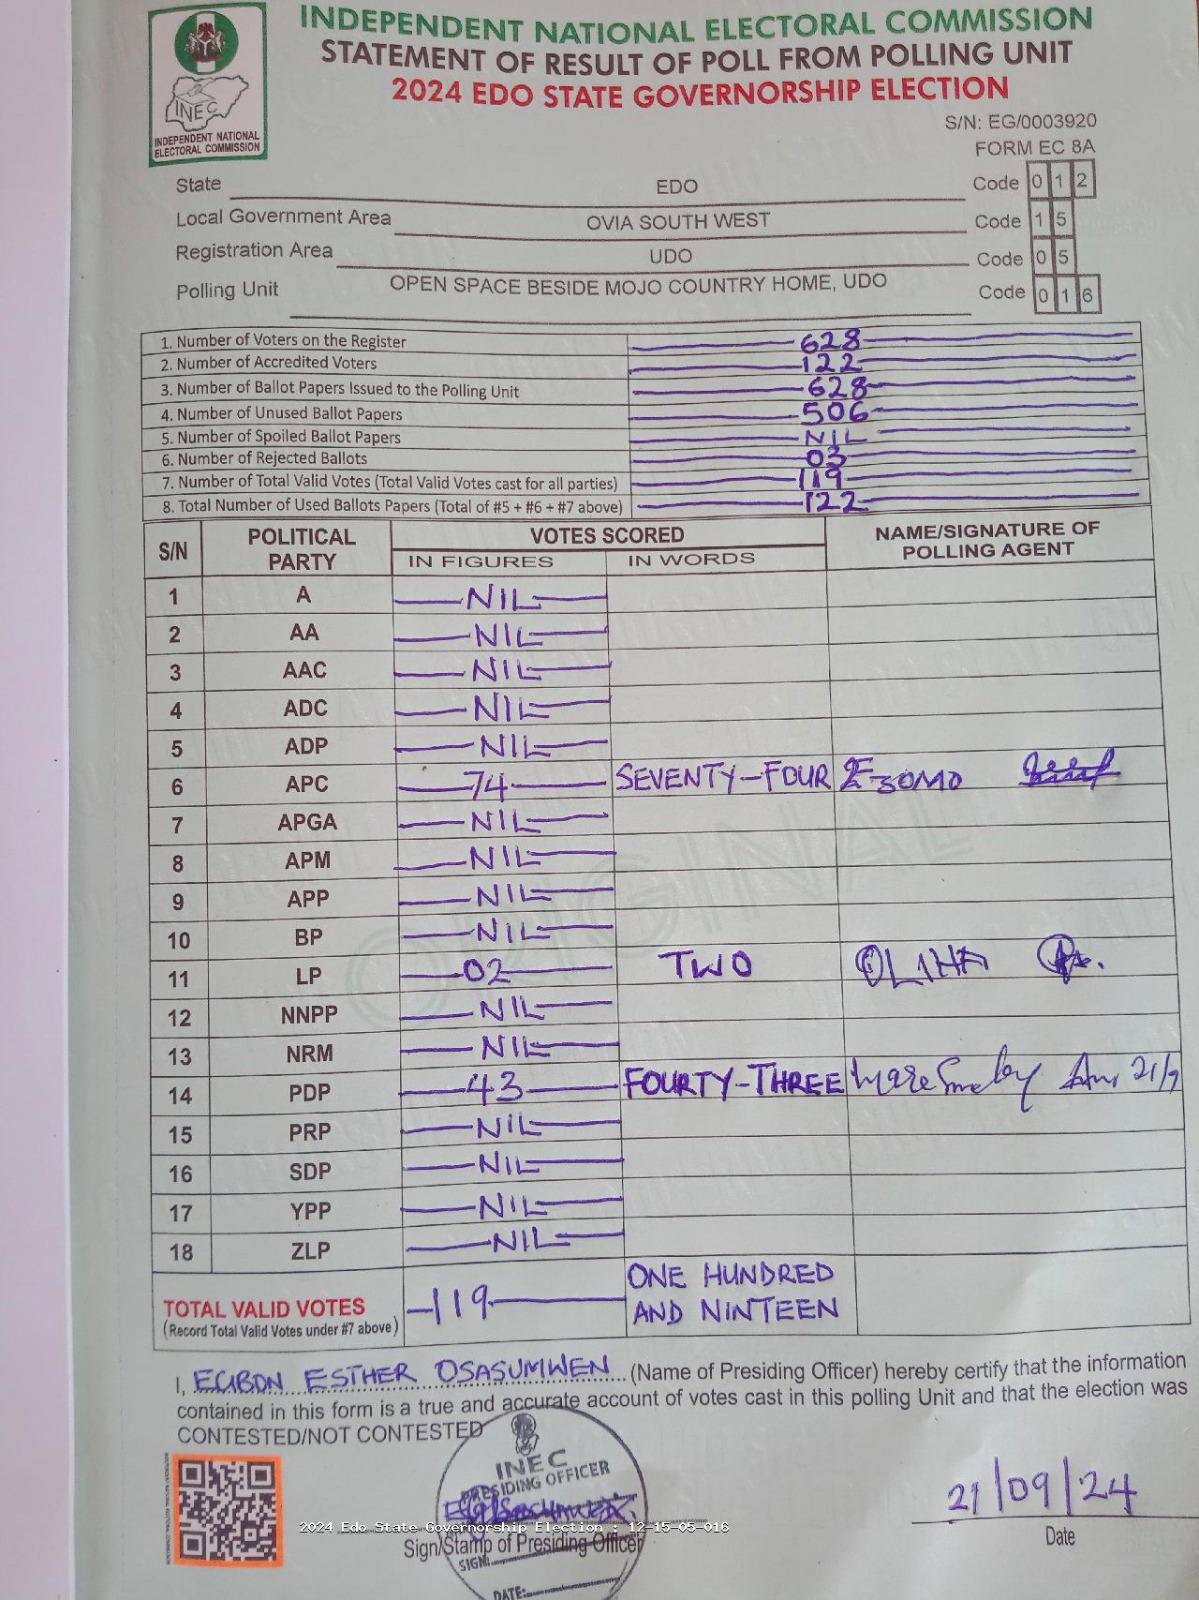 INDEPENDENT NATIONAL ELECTORAL COMMISSION
STATEMENT OF RESULT OF POLL FROM POLLING UNIT
2024 EDO STATE GOVERNORSHIP ELECTION
INEC
INDEPENDENT NATIONAL
ELECTORAL COMMISSION
S/N: EG/0003920
FORM EC 8A
State EDO Code 0 1 2
Local Government Area OVIA SOUTH WEST Code 1 5
Registration Area UDO Code 0 5
Polling Unit OPEN SPACE BESIDE MOJO COUNTRY HOME, UDO Code 0 1 6
1. Number of Voters on the Register 628
2. Number of Accredited Voters 122
3. Number of Ballot Papers Issued to the Polling Unit 628
4. Number of Unused Ballot Papers 506
5. Number of Spoiled Ballot Papers NIL
6. Number of Rejected Ballots 03
7. Number of Total Valid Votes (Total Valid Votes cast for all parties) 119
8. Total Number of Used Ballots Papers (Total of #5 + #6 + #7 above) 122
S/N POLITICAL PARTY VOTES SCORED NAME/SIGNATURE OF POLLING AGENT
IN FIGURES IN WORDS
1 A NIL
2 AA NIL
3 AAC NIL
4 ADC NIL
5 ADP NIL
6 APC 74 SEVENTY-FOUR EZOMO
7 APGA NIL
8 APM NIL
9 APP NIL
10 BP NIL
11 LP 02 TWO OLIHA
12 NNPP NIL
13 NRM NIL
14 PDP 43 FOURTY-THREE 21/9
15 PRP NIL
16 SDP NIL
17 YPP NIL
18 ZLP NIL
TOTAL VALID VOTES 119 ONE HUNDRED
(Record Total Valid Votes under #7 above) AND NINTEEN
ORIGINAL
I, EGIBON ESTHER OSASUMWEN (Name of Presiding Officer) hereby certify that the information
contained in this form is a true and accurate account of votes cast in this polling Unit and that the election was
CONTESTED/NOT CONTESTED
INEC
PRESIDING OFFICER
21/09/24
2024 Edo State Governorship Election : 12-15-05-016
Sign/Stamp of Presiding Officer
Date
SIGN:
DATE: